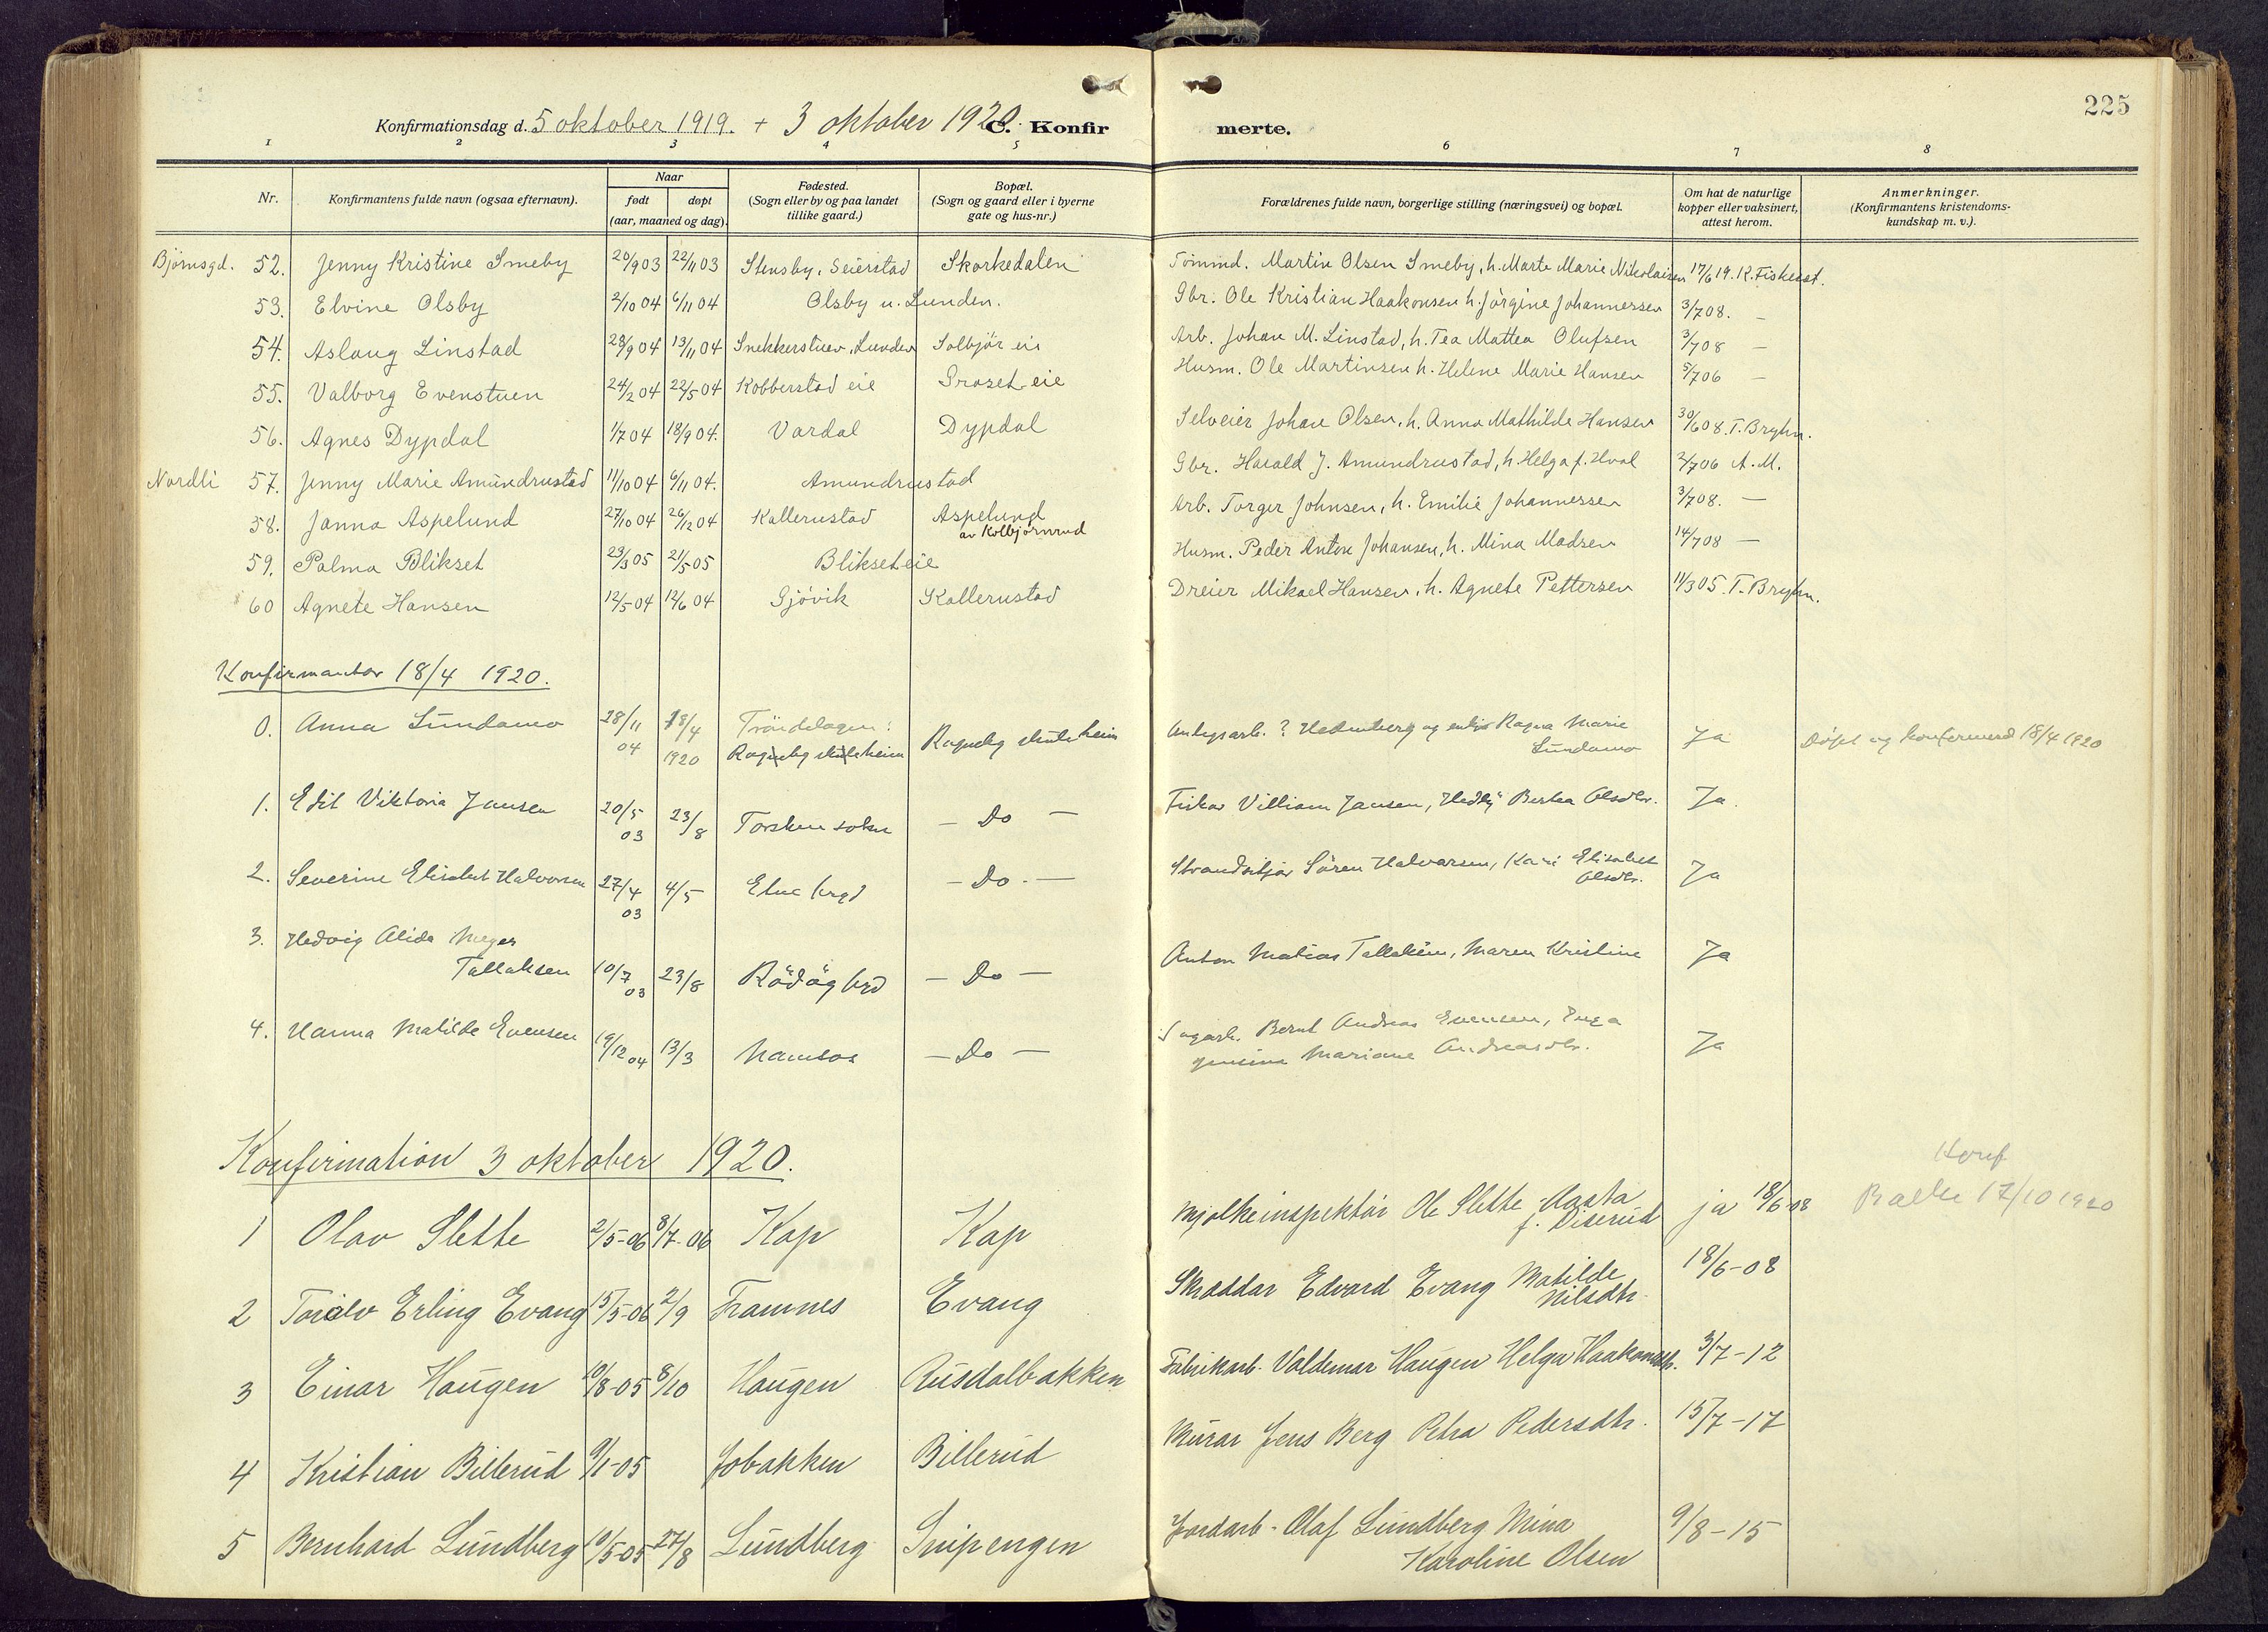 225
Konfirmationsdag d. 5 oktober 1919. + 3 oktober 1920. C. Konfirmerte.
1 2 3 4 5 6 7 8
Nr. Konfirmantens fulde navn (ogsaa efternavn). Naar født døpt (aar, maaned og dag). Fødested. (Sogn eller by og paa landet tillike gaard.) Bopæl. (Sogn og gaard eller i byerne gate og hus-nr.) Forældrenes fulde navn, borgerlige stilling (næringsvei) og bopæl. Om hat de naturlige kopper eller vaksinert, attest herom. Anmerkninger. (Konfirmantens kristendomskundskap m. v.).
Bjørnsgd. 52. Jenny Kristine Smeby 20/9 03 22/11 03 Stensby, Seierstad Skorkedalen Tömmd. Martin Olsen Smeby, h. Marte Marie Nikolaisen 17/6 19. K. Fiskerst.
53. Elvine Olsby 2/10 04 6/11 04 Olsby u. Lunden. Gbr. Ole Kristian Haakonsen h. Jörgine Johannessen 3/7 08. —
54. Aslaug Linstad 28/9 04 13/11 04 Snekkerstuen, Lunden Solbjör eie Arb. Johan M. Linstad, h. Tea Mattea Olufsen 3/7 08 —
55. Valborg Evenstuen 24/2 04 22/5 04 Kobberstad eie Groset eie Husm. Ole Martinsen h. Helene Marie Hansen 5/7 06 —
56. Agnes Dypdal 1/7 04 18/9 04. Vardal Dypdal Selveier Johan Olsen, h. Anna Mathilde Hansen 30/6 08. T. Bryhn.
Nordli 57. Jenny Marie Amundrustad 11/10 04 6/11 04. Amundrustad Gbr. Harald J. Amundrustad, h. Helga f. Hval 2/7 06 A. M.
58. Janna Aspelund 27/10 04 26/12 04 Kallerustad Aspelund av Kolbjørnrud Arb. Torger Johnsen, h. Emilie Johannessen 3/7 08. —
59. Palma Blikset 23/3 05 21/5 05 Blikset eie Husm. Peder Anton Johansen, h. Mina Madsen 14/7 08 —
60 Agnete Hansen 12/5 04 12/6 04 Gjövik Kallerustad Dreier Mikael Hansen, h. Agnete Pettersen 11/3 05. T. Bryhn.
Konfirmantar 18/4 1920.
0. Anna Lundamo 28/11 04 18/4 1920 Tröndelagen: Rognely skuleheim Ragn. Marie Lundamo Ja Döpt og konfirmerd 18/4 1920
1. Edit Viktoria Jansen 20/5 03 23/8 Torsken sokn — Do — Fiskar Villiam Jansen, Bertea Olsdtr. Ja.
2. Severine Elisabet Halvorsen 27/4 03 4/5 — Do. — Sören Halvorsen, Kari Elisabet Olsdtr. Ja
3. Hedvig Alida Meyer Tallaksen 10/7 03 23/8 Rödöy — Do — Anton Matias Tallaksen, Maren Kristine Ja
4. Hanna Matilde Evensen 19/12 04 13/3 Namsos — Do — Sagarb. Bernt Andreas Evensen, Inga Mariane Andreasdtr. Ja
Konfirmation 3 oktober 1920.
1 Olav Slette 2/5-06 8/7-06 Kap Kap Mjølkeinspektör Ole Slette - Aasta f. Diserud ja 18/6 08 Konf Balke 17/10 1920
2 Torolv Erling Evang 15/5-06 2/9 Framnes Evang Skræddar Edvard Evang Matilde Nilsdtr. 18/6-08
3 Einar Haugen 10/8-05 8/10 Haugen Rusdalbakken Fabrikarb. Valdemar Haugen Helga Haakonsdtr. 3/7-12
4 Kristian Billerud 9/1-05 Jobakken Billerud Murar Jens Berg Petra Pedersdtr. 15/7-17
5 Bernhard Lundberg 10/5-05 27/8 Lundberg Snipengen Jordarb - Olaf Lundberg Mina Karoline Olsen 9/8-15